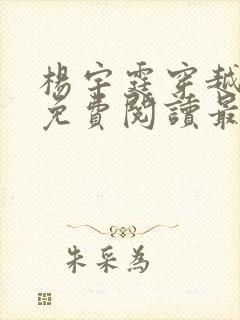 楊宇霆穿越
免費閱讀最
朱采為